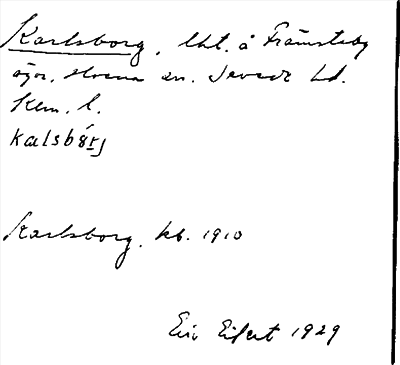 Karlsborg, lht. å Främsteby
ägor, Hvena sn. Sevede hd.
Klm. l.
kalsbårj
Karlsborg. kb. 1910
Eric Eifert 1929